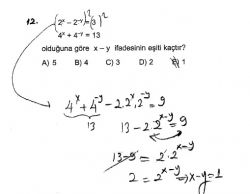 12. (2ˣ - 2⁻ʸ)² = (3)²
4ˣ + 4⁻ʸ = 13
olduğuna göre x - y ifadesinin eşiti kaçtır?
A) 5 B) 4 C) 3 D) 2 E) 1
4ˣ + 4⁻ʸ - 2.2ˣ.2⁻ʸ = 9
13
13 - 2.2ˣ⁻ʸ = 9
13 - 9 = 2.2ˣ⁻ʸ
2 = 2ˣ⁻ʸ ⇒ x-y=1